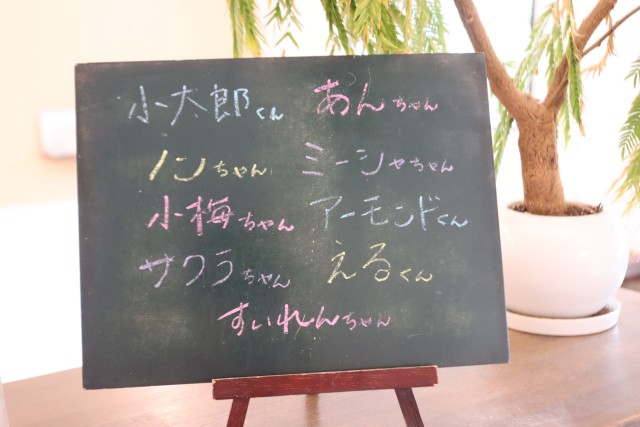 小太郎くん あんちゃん
ノンちゃん ミーシャちゃん
小梅ちゃん アーモンドくん
サクラちゃん えるくん
すいれんちゃん